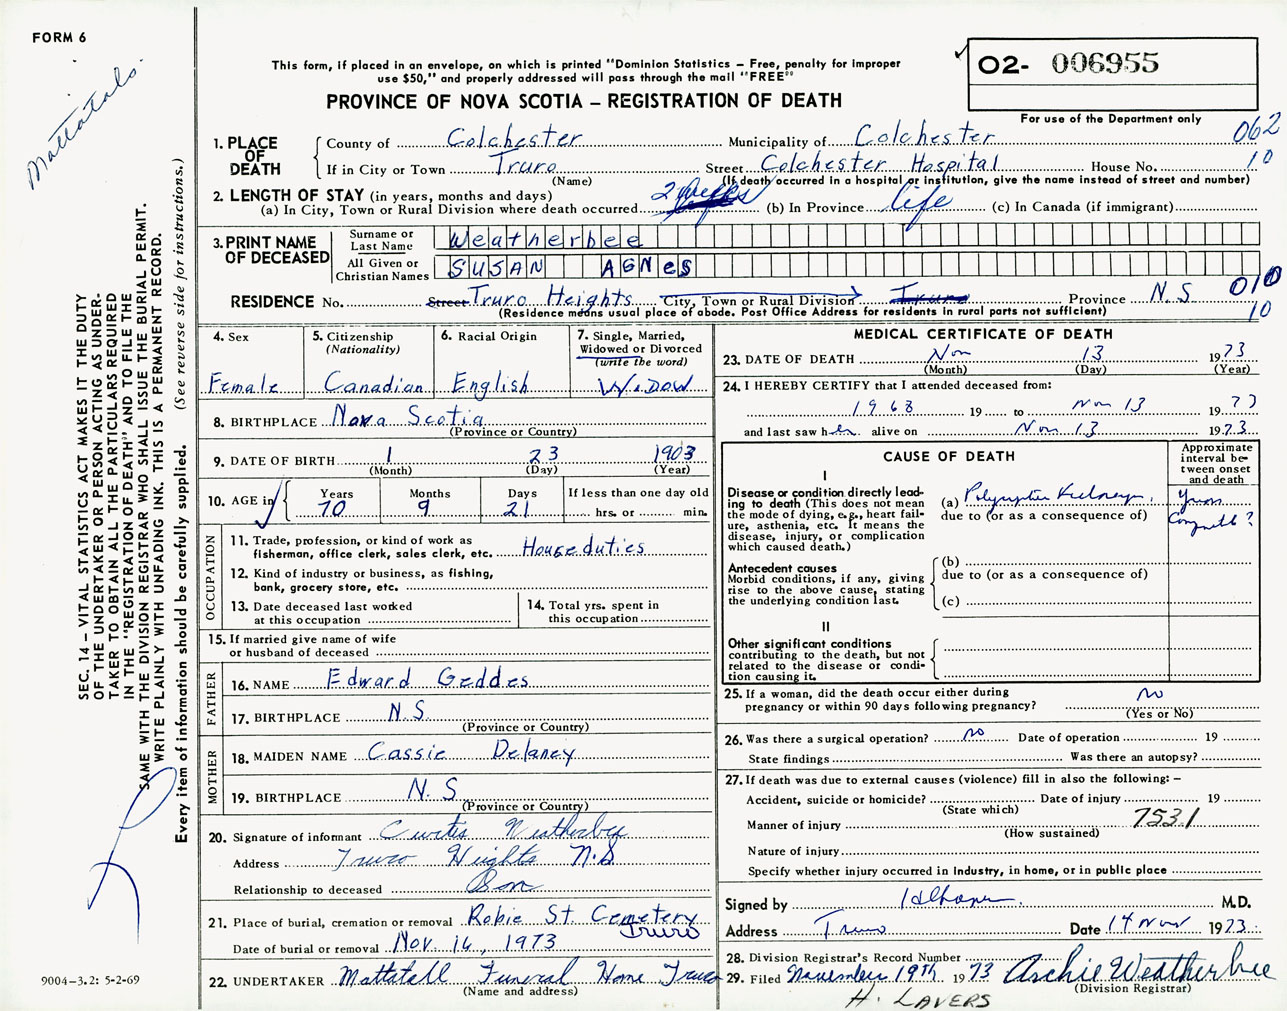 FORM 6
Mattatals.
This form, if placed in an envelope, on which is printed "Dominion Statistics – Free, penalty for improper
use $50," and properly addressed will pass through the mail "FREE"
PROVINCE OF NOVA SCOTIA – REGISTRATION OF DEATH
O2- 006955
For use of the Department only
062
10
1. PLACE OF DEATH
County of Colchester Municipality of Colchester
If in City or Town Truro Street Colchester Hospital House No.
(Name) (If death occurred in a hospital or institution, give the name instead of street and number)
2. LENGTH OF STAY (in years, months and days)
(a) In City, Town or Rural Division where death occurred 2 weeks (b) In Province life (c) In Canada (if immigrant)
3. PRINT NAME OF DECEASED
Surname or Last Name Weatherbee
All Given or Christian Names SUSAN AGNES
RESIDENCE No. Street Truro Heights City, Town or Rural Division Truro Province N.S 010
(Residence means usual place of abode. Post Office Address for residents in rural parts not sufficient) 10
4. Sex
Female
5. Citizenship
(Nationality)
Canadian
6. Racial Origin
English
7. Single, Married,
Widowed or Divorced
(write the word)
Widow
8. BIRTHPLACE Nova Scotia
(Province or Country)
9. DATE OF BIRTH 1 23 1903
(Month) (Day) (Year)
10. AGE in Years 70 Months 9 Days 21 If less than one day old
hrs. or min.
OCCUPATION
11. Trade, profession, or kind of work as
fisherman, office clerk, sales clerk, etc. House duties
12. Kind of industry or business, as fishing,
bank, grocery store, etc.
13. Date deceased last worked
at this occupation
14. Total yrs. spent in
this occupation
15. If married give name of wife
or husband of deceased
FATHER
16. NAME Edward Geddes
17. BIRTHPLACE N.S.
(Province or Country)
MOTHER
18. MAIDEN NAME Cassie Delaney
19. BIRTHPLACE N.S
(Province or Country)
20. Signature of informant Curtis Weatherby
Address Truro Heights N.S
Relationship to deceased Son
21. Place of burial, cremation or removal Robie St Cemetery
Truro
Date of burial or removal Nov. 16, 1973
22. UNDERTAKER Mattatall Funeral Home Truro
(Name and address)
MEDICAL CERTIFICATE OF DEATH
23. DATE OF DEATH Nov 13 1973
(Month) (Day) (Year)
24. I HEREBY CERTIFY that I attended deceased from:
1968 19 to Nov 13 1973
and last saw her alive on Nov 13 1973
CAUSE OF DEATH
Approximate
interval be-
tween onset
and death
I
Disease or condition directly lead-
ing to death (This does not mean
the mode of dying, e.g., heart fail-
ure, asthenia, etc. It means the
disease, injury, or complication
which caused death.)
(a) Kidneys.
due to (or as a consequence of)
Antecedent causes
Morbid conditions, if any, giving
rise to the above cause, stating
the underlying condition last.
(b)
due to (or as a consequence of)
(c)
II
Other significant conditions
contributing to the death, but not
related to the disease or condi-
tion causing it.
25. If a woman, did the death occur either during
pregnancy or within 90 days following pregnancy? no
(Yes or No)
26. Was there a surgical operation? no Date of operation 19
State findings Was there an autopsy?
27. If death was due to external causes (violence) fill in also the following: –
Accident, suicide or homicide? Date of injury 19
(State which)
Manner of injury 7531
(How sustained)
Nature of injury
Specify whether injury occurred in Industry, in home, or in public place
Signed by M.D.
Address Truro Date 14 Nov 1973
28. Division Registrar's Record Number
29. Filed November 19th 1973 Archie Weatherbee
(Division Registrar)
H. LAVERS
SEC. 14 – VITAL STATISTICS ACT MAKES IT THE DUTY
OF THE UNDERTAKER OR PERSON ACTING AS UNDER-
TAKER TO OBTAIN ALL THE PARTICULARS REQUIRED
IN THE "REGISTRATION OF DEATH" AND TO FILE THE
SAME WITH THE DIVISION REGISTRAR WHO SHALL ISSUE THE BURIAL PERMIT.
WRITE PLAINLY WITH UNFADING INK. THIS IS A PERMANENT RECORD.
Every item of information should be carefully supplied. (See reverse side for instructions.)
9004–3.2: 5-2-69